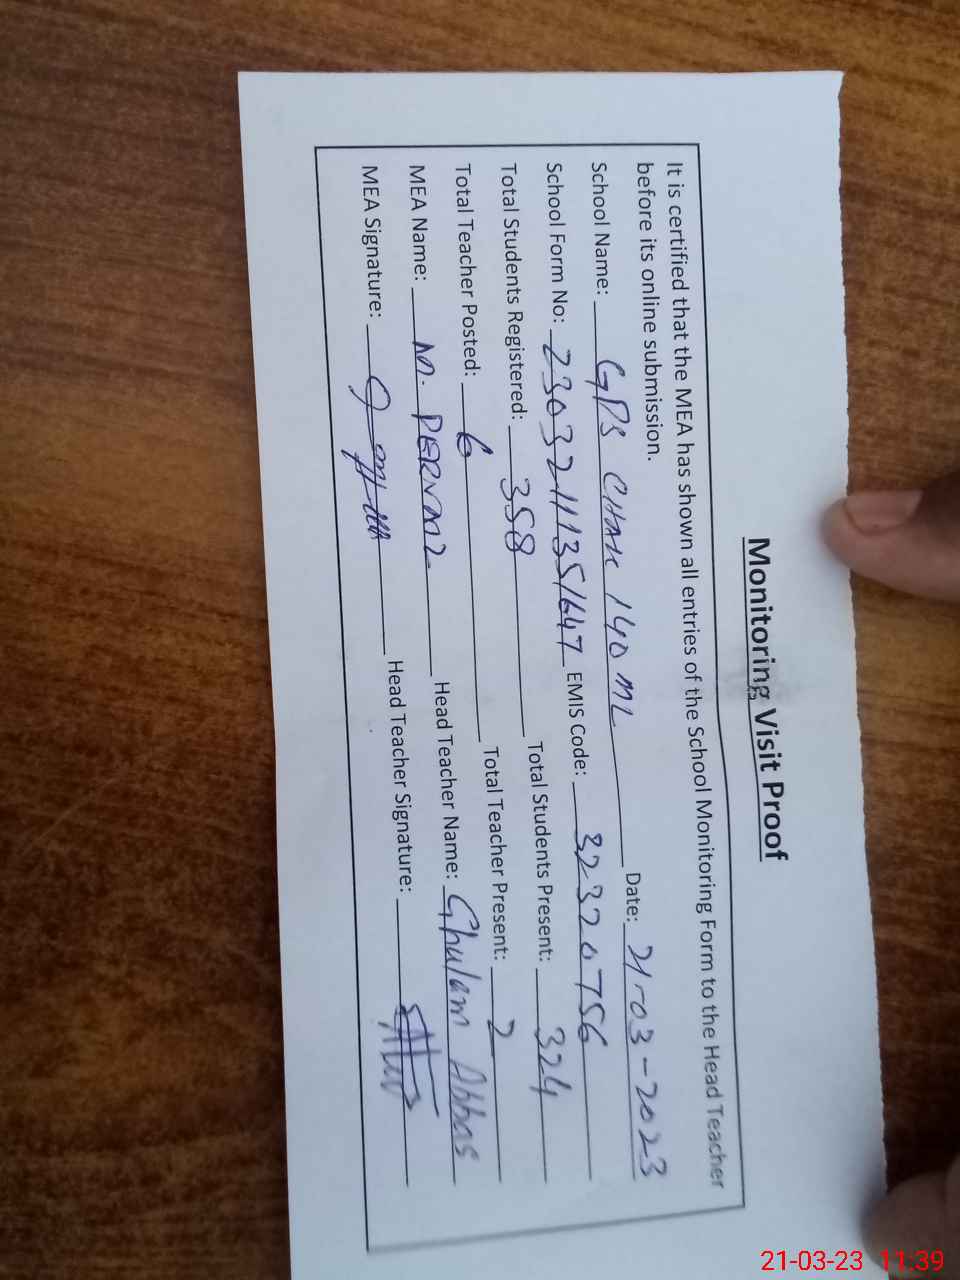 Monitoring Visit Proof
It is certified that the MEA has shown all entries of the School Monitoring Form to the Head Teacher
before its online submission.
School Name: GPS CHAK 140 ML Date: 21-03-2023
School Form No: 23032111351647 EMIS Code: 32320756
Total Students Registered: 358 Total Students Present: 324
Total Teacher Posted: 6 Total Teacher Present: 2
MEA Name: M. PERVAIZ Head Teacher Name: Ghulam Abbas
MEA Signature: Head Teacher Signature:
21-03-23 11:39